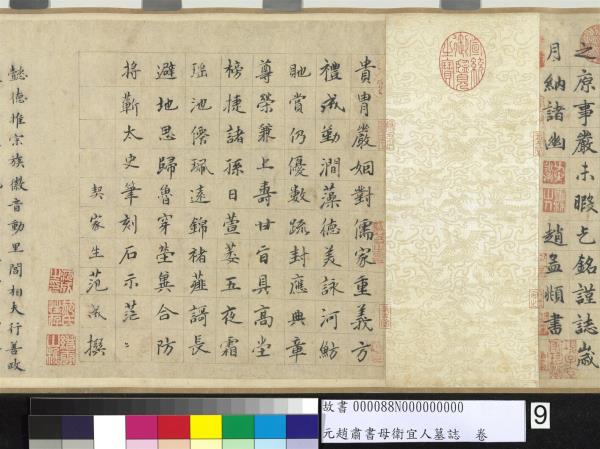 之原事嚴未暇乞銘謹誌歲
月納諸幽　趙孟頫書
宣統御覽之寶
貴胄嚴姻對儒家重義方
禮成勤澗藻德美詠河魴
貤賞仍優數疏封應典章
尊榮兼上壽甘旨具高堂
榜捷諸孫日萱萎五夜霜
瑶池僊珮遠錦褚薤謌長
避地思歸魯穿塋異合防
將蘄太史筆刻石示茫〻
契家生范　撰
懿德推宗族徽音動里閭相夫行善政
故書 000088N000000000
元趙肅書母衛宜人墓誌　卷
9